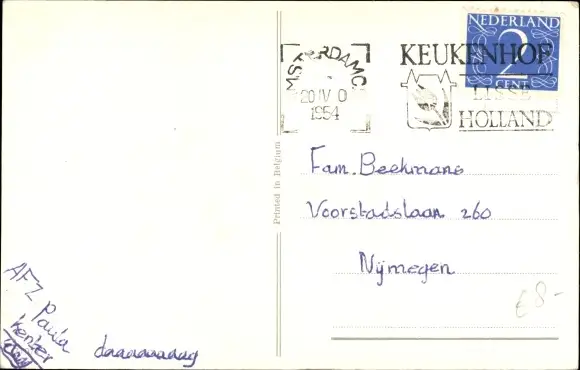 NEDERLAND
2
CENT
KEUKENHOF
LISSE
HOLLAND
MSTERDAMC
20 IV 0
1954
Printed in Belgium
Fam. Beekmans
Voorstadslaan 260
Nijmegen
€8-
AFZ Paula
daaaaaaaag